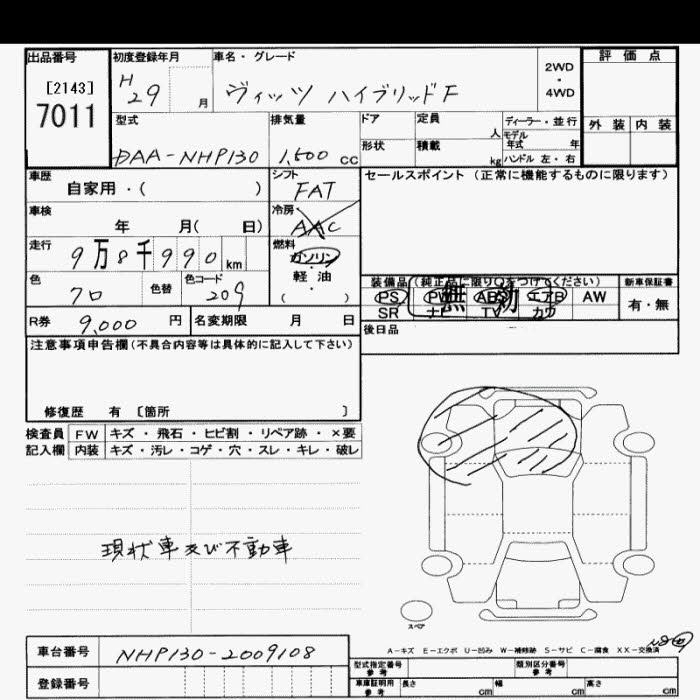 出品番号 初度登録年月 車名・グレード 2WD・4WD 評価点
[2143]
7011
H29 月 ヴィッツ ハイブリッドF
型式 排気量 ドア 定員 人 ディーラー・並行 外装 内装
DAA-NHP130 1,500 cc 形状 積載 kg モデル年式 年
ハンドル 左・右
車歴 自家用・( ) シフト FAT セールスポイント (正常に機能するものに限ります)
車検 年 月( 日) 冷房 AAC
走行 9万8千990km 燃料 ガソリン・軽油・( )
色 クロ 色替 色コード 209 装備品(純正品に限り○をつけてください) 新車保証書
PS PW ABS エアB AW 有・無
無効
SR ナビ TV カワ
R券 9,000 円 名変期限 月 日 後日品
注意事項申告欄(不具合内容等は具体的に記入して下さい)
修復歴 有 〔箇所 〕
検査員 FW キズ・飛石・ヒビ割・リペア跡・×要
記入欄 内装 キズ・汚レ・コゲ・穴・スレ・キレ・破レ
現状車及び不動車
スペア
A-キズ E-エクボ U-凹み W-補修跡 S-サビ C-腐食 XX-交換済
車台番号 NHP130-2009108 型式指定番号 参考 類別区分番号 参考
登録番号 車庫証明用 参考 長さ cm 幅 cm 高さ cm